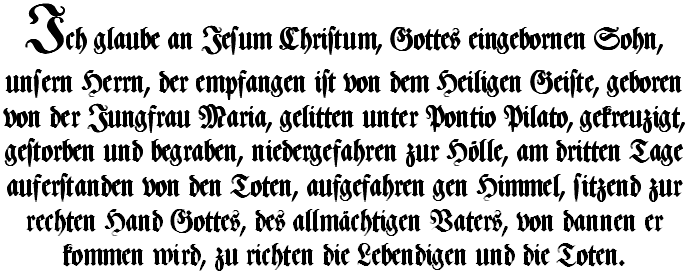 Ich glaube an Jesum Christum, Gottes eingebornen Sohn,
unsern Herrn, der empfangen ist von dem Heiligen Geiste, geboren
von der Jungfrau Maria, gelitten unter Pontio Pilato, gekreuzigt,
gestorben und begraben, niedergefahren zur Hölle, am dritten Tage
auferstanden von den Toten, aufgefahren gen Himmel, sitzend zur
rechten Hand Gottes, des allmächtigen Vaters, von dannen er
kommen wird, zu richten die Lebendigen und die Toten.